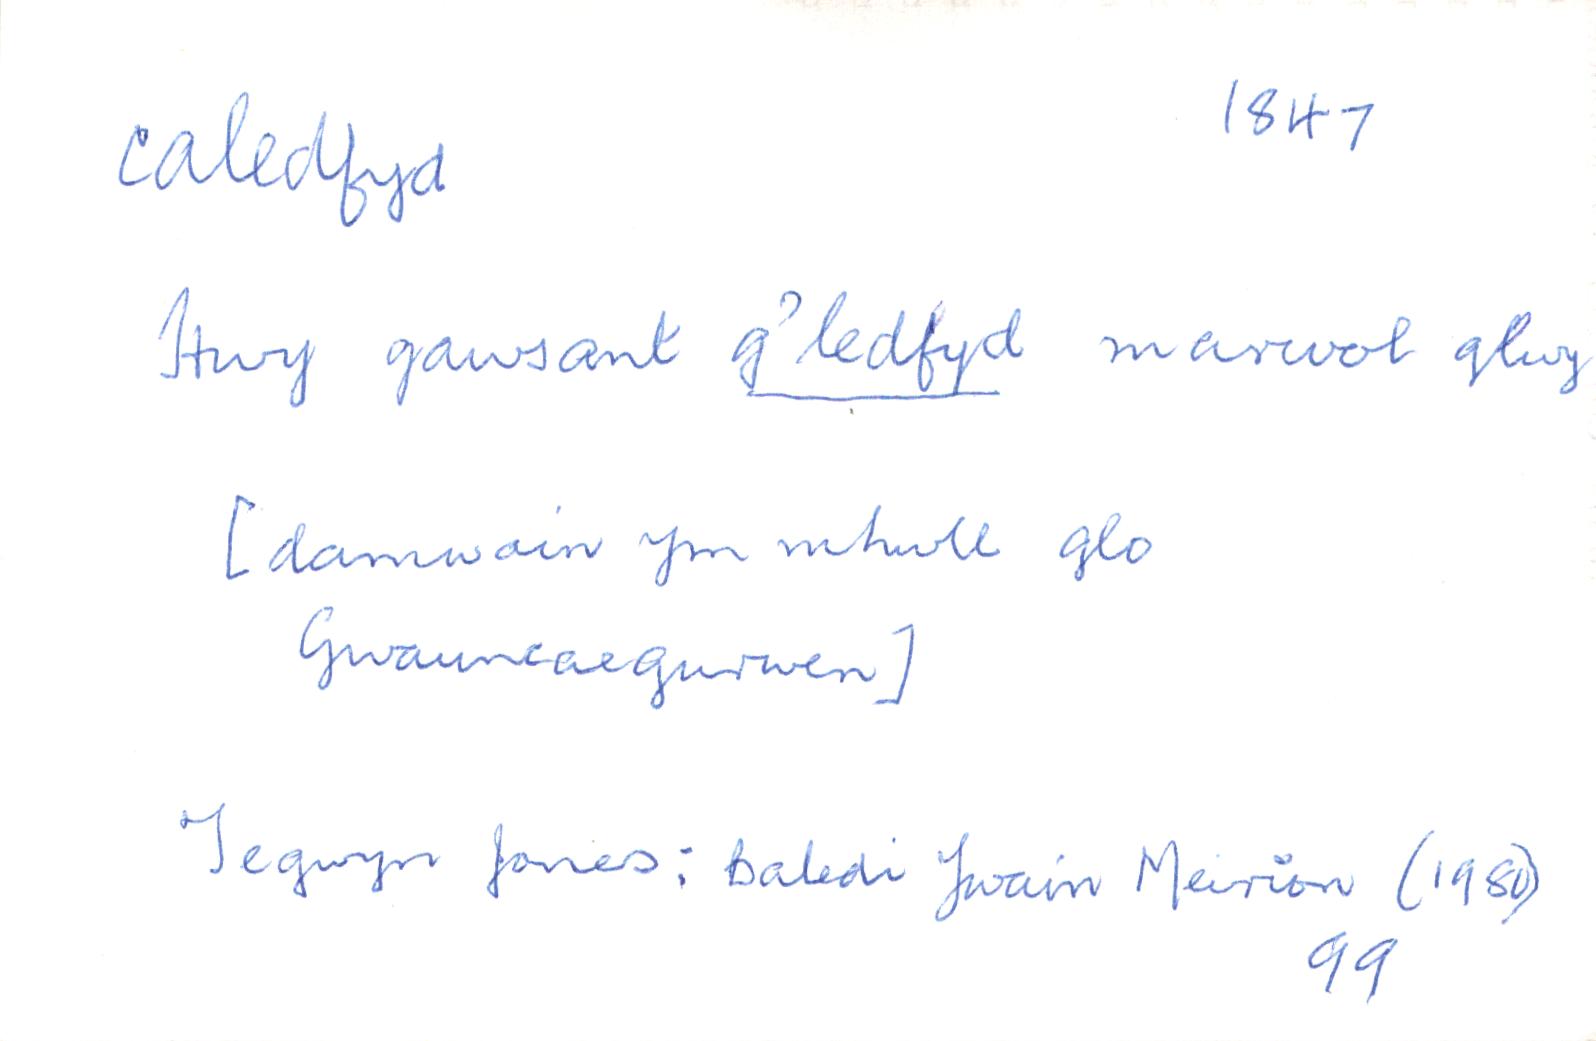 caledfyd 1847
Hwy gawsant g'ledfyd marwol glwy
[damwain ym mhwll glo
Gwauncaegurwen]
Tegwyn Jones: Baledi Ywain Meirion (1980)
99